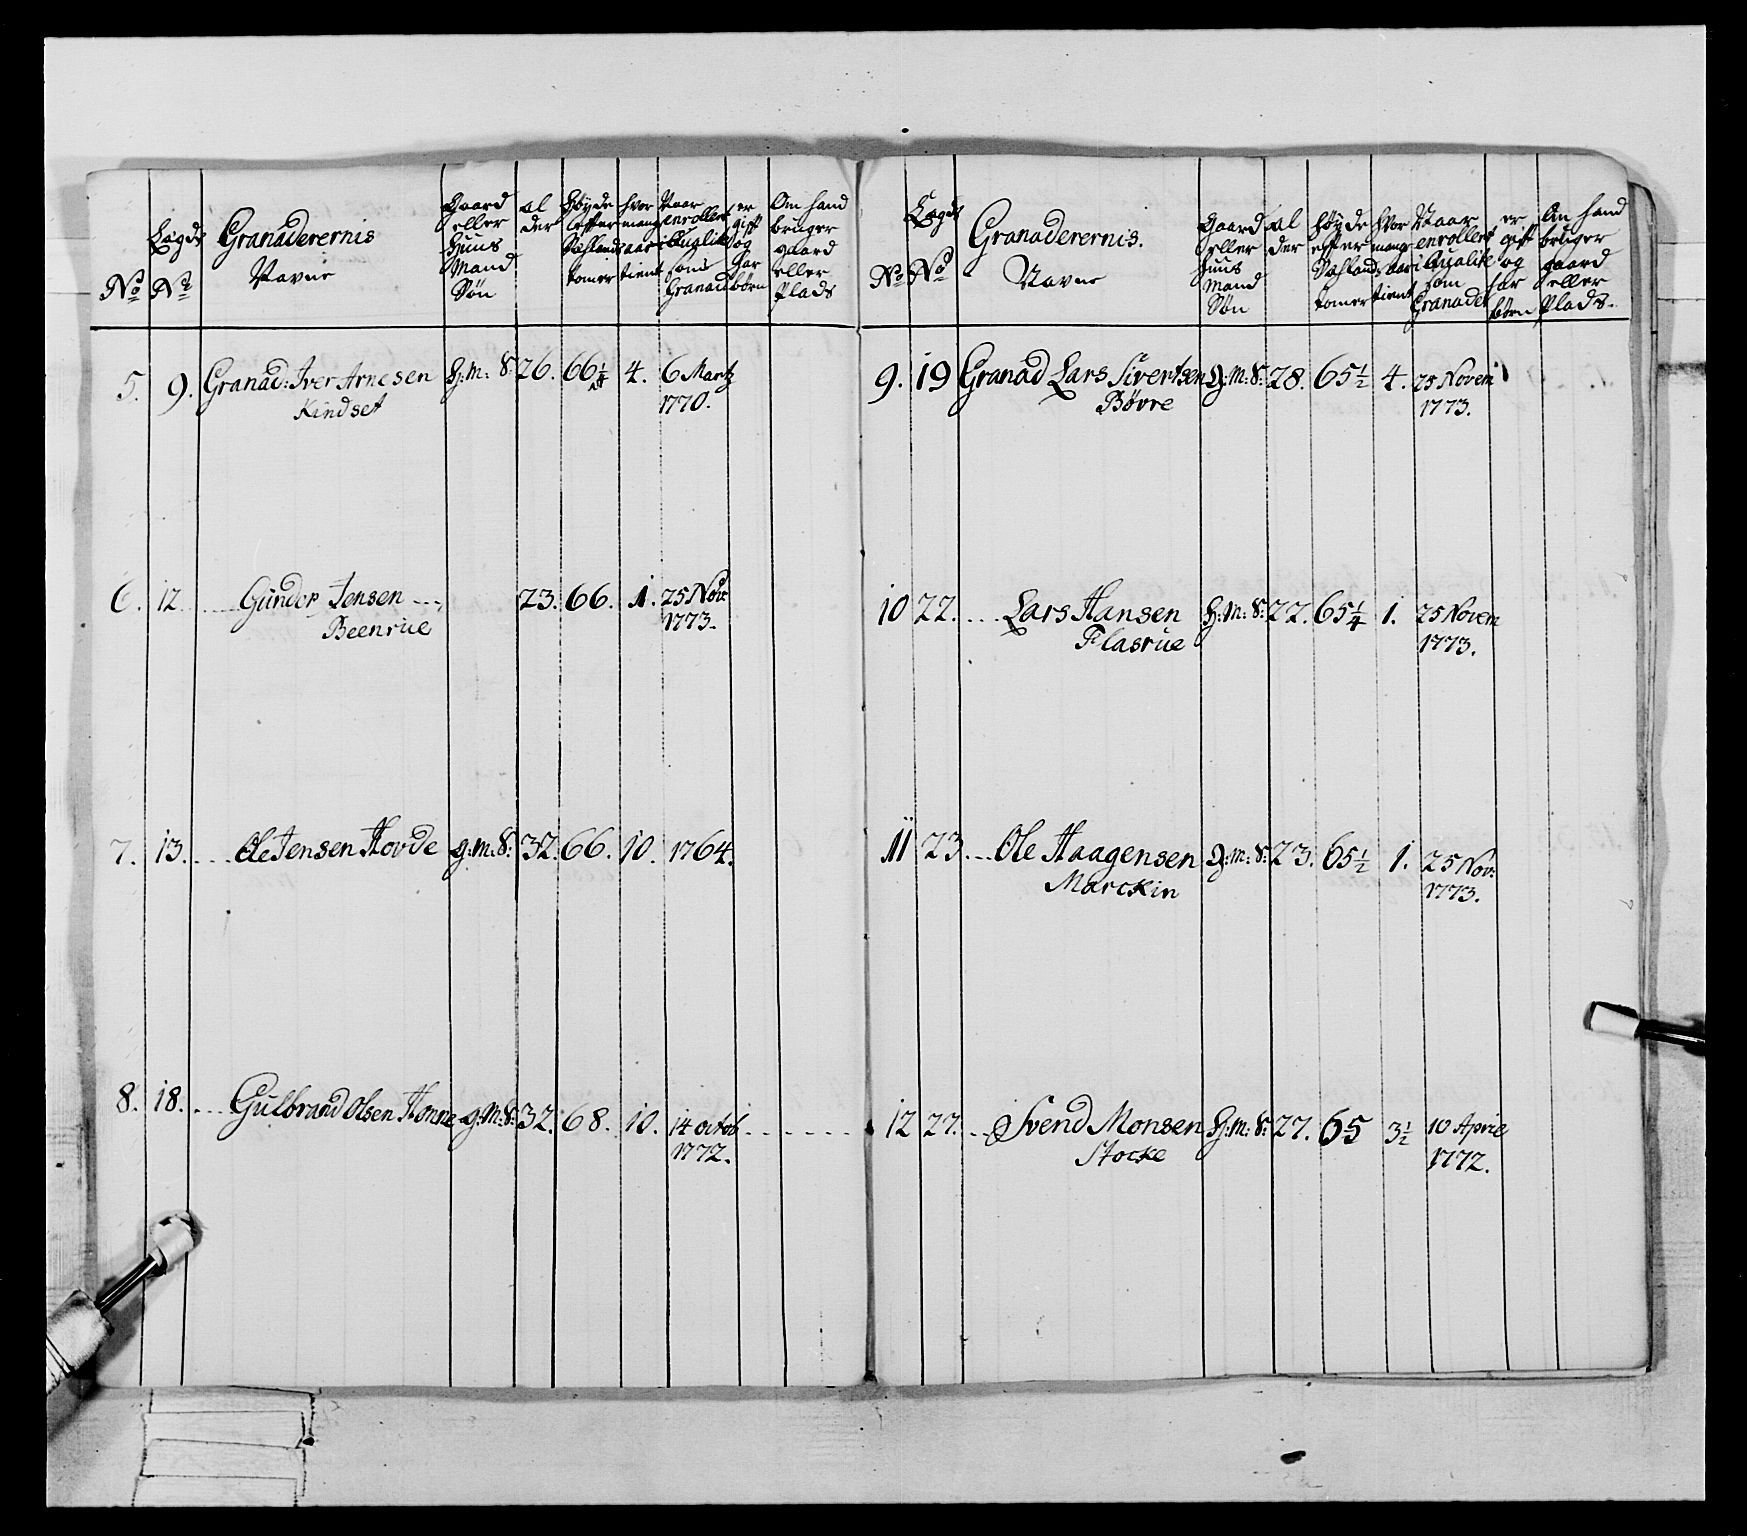 No
Lægds No
Granaderernis Navne
Gaard eller Huus Mand Søn
Al der
Høyde efter Sæsland tomer
hvor mange aar tient
Naar enrollert i Qualite som Granad
er gift og har børn
Om hand bruger gaard eller Plads
5. 9. Granad: Iver Arnesen H: M: S: 26. 66 1/4 4. 6 Martz
Kindset 1770.
6. 12. Gunder Jensen 23. 66. 1. 25 Nov:
Beenrue 1773.
7. 13. Ole Jensen Hovde g: M: S: 32. 66. 10. 1764.
8. 18. Gulbrand Olsen Honne g: M: S: 32. 68. 10. 14 octob
1772.
No
Lægds No
Granaderernis. Navne
Gaard eller Huus Mand Søn
Al der
Høyde efter Sæsland tomer
hvor mange aar tient
Naar enrollert i Qualite som Granader
er gift og har børn
Om hand bruger gaard eller Plads.
9. 19 Granad Lars Sivertsen g: M: S: 28. 65 1/2 4. 25 Novem
Bøvre 1773.
10 22. Lars Hansen H: M: S: 22. 65 1/4 1. 25 Novem
Flasrue 1773.
11 23. Ole Haagensen g: M: S: 23. 65 1/2 1. 25 Nov:
Marckin 1773.
12 27. Svend Monsen H: M: S: 27. 65 3 1/2 10 April
Stocke 1772.